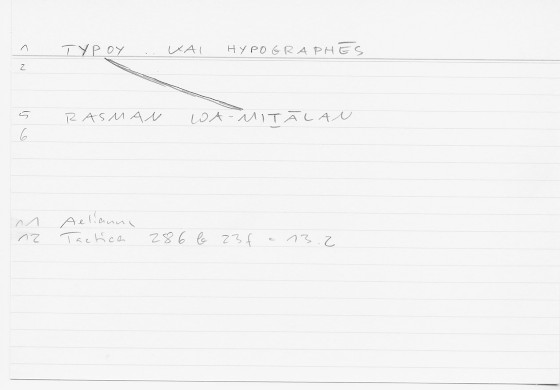 1 TYPOY .. KAI HYPOGRAPHĒS
2
5 RASMAN WA-MIṮĀLAN
6
11 Aelianus
12 Tactica 286 b 23f = 13.2